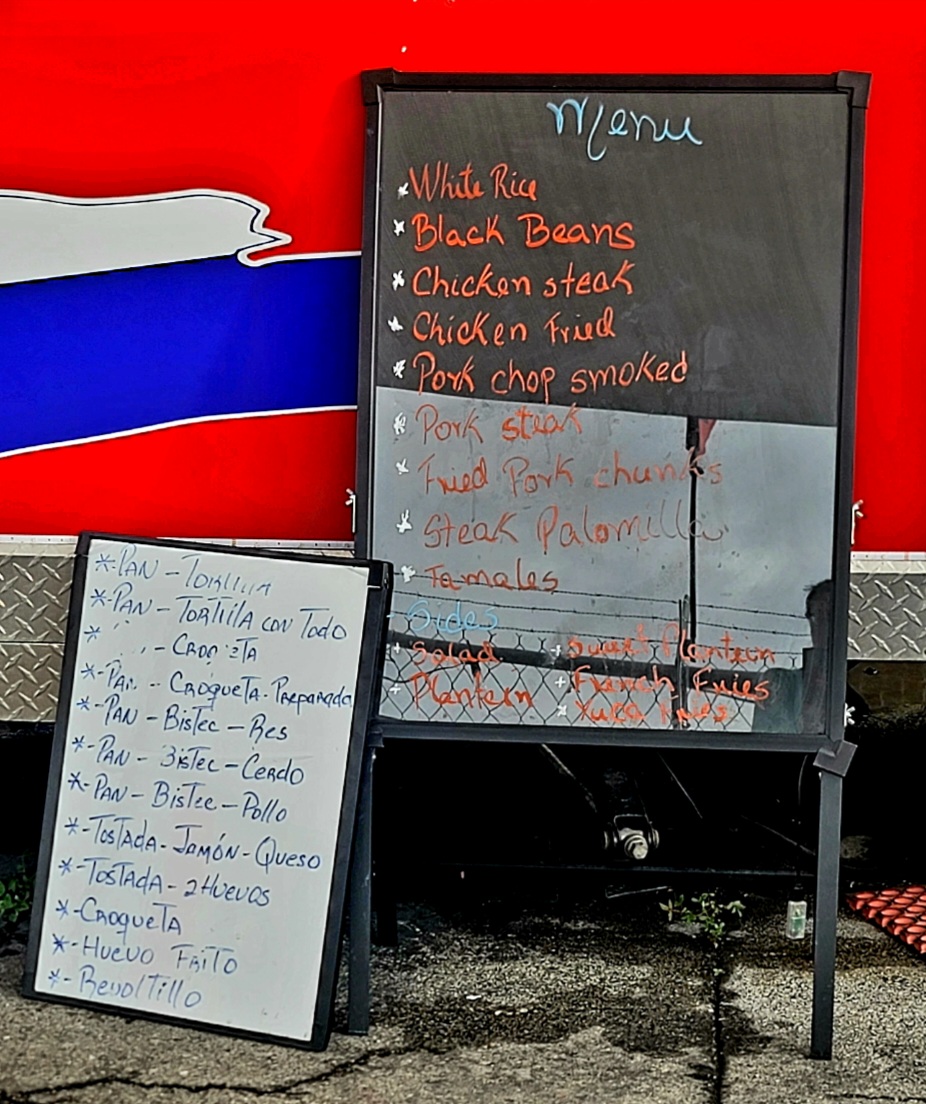 Menu
* White Rice
* Black Beans
* Chicken steak
* Chicken Fried
* Pork chop smoked
* Pork steak
* Fried Pork chunks
* Steak Palomilla
* Tamales
Sides
+ Salad + Sweet Plantein
+ Plantein + French Fries
* Yuca Fries
*-PAN - TORTILLA
*-PAN - TORTILLA CON TODO
* - CROQUETA
*-PAN - CROQUETA-PREPARADA
*-PAN - BISTEC - RES
*-PAN - BISTEC - CERDO
*-PAN - BISTEC - POLLO
*-TOSTADA-JAMÓN-QUESO
*-TOSTADA - 2 HUEVOS
*-CROQUETA
*-HUEVO FRITO
*-REVOLTILLO